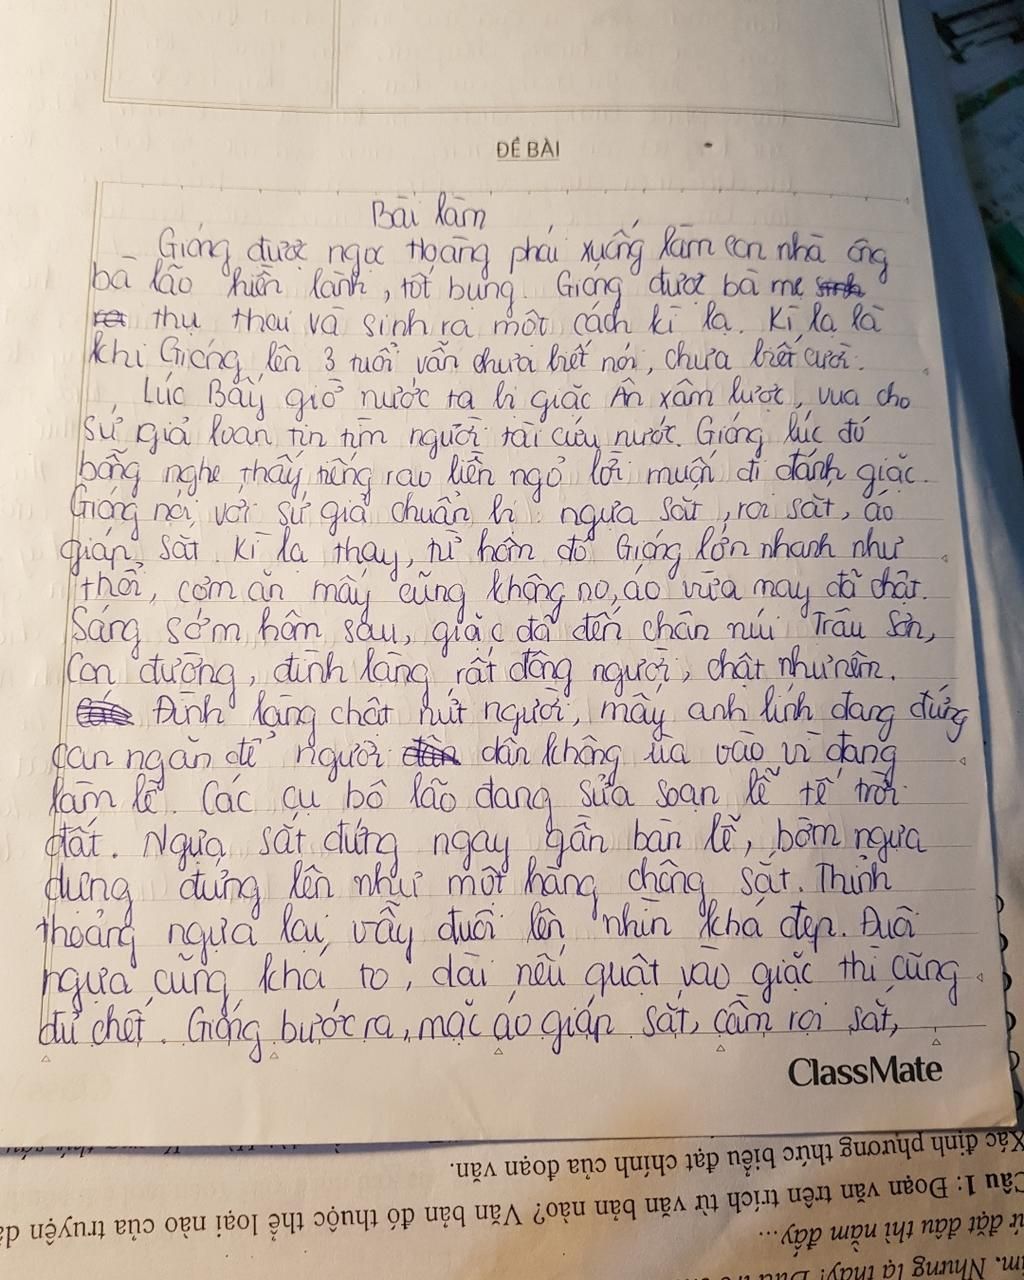 ĐỀ BÀI
Bài làm
Gióng được ngọc Hoàng phái xuống làm con nhà ông
bà lão hiền lành, tốt bụng. Gióng được bà mẹ
thụ thai và sinh ra một cách kì lạ. Kì lạ là
khi Gióng lên 3 tuổi vẫn chưa biết nói, chưa biết cười.
Lúc Bấy giờ nước ta bị giặc Ân xâm lược, vua cho
sứ giả loan tin tìm người tài cứu nước. Gióng lúc đó
bỗng nghe thấy tiếng rao liền ngỏ lời muốn đi đánh giặc.
Gióng nói với sứ giả chuẩn bị: ngựa sắt, roi sắt, áo
giáp sắt. Kì lạ thay, từ hôm đó Gióng lớn nhanh như
thổi, cơm ăn mấy cũng không no, áo vừa may đã chật.
Sáng sớm hôm sau, giặc đã đến chân núi Trâu Sơn,
Con đường, đình làng rất đông người, chật như nêm.
Đình làng chật nứt người, mấy anh lính đang đứng
can ngăn để người dân không ùa vào vì đang
làm lễ. Các cụ bô lão đang sửa soạn lễ tế trời
đất. Ngựa sắt đứng ngay gần bàn lễ, bờm ngựa
dựng đứng lên như một hàng chông sắt. Thỉnh
thoảng ngựa lại vẫy đuôi lên nhìn khá đẹp. Đuôi
ngựa cũng khá to, dài nếu quật vào giặc thì cũng
đủ chết. Gióng bước ra, mặc áo giáp sắt, cầm roi sắt,
ClassMate
Xác định phương thức biểu đạt chính của đoạn văn.
Câu 1: Đoạn văn trên trích từ văn bản nào? Văn bản đó thuộc thể loại nào của truyện
đặt đâu thì nằm đấy...
Nhưng lạ thay!